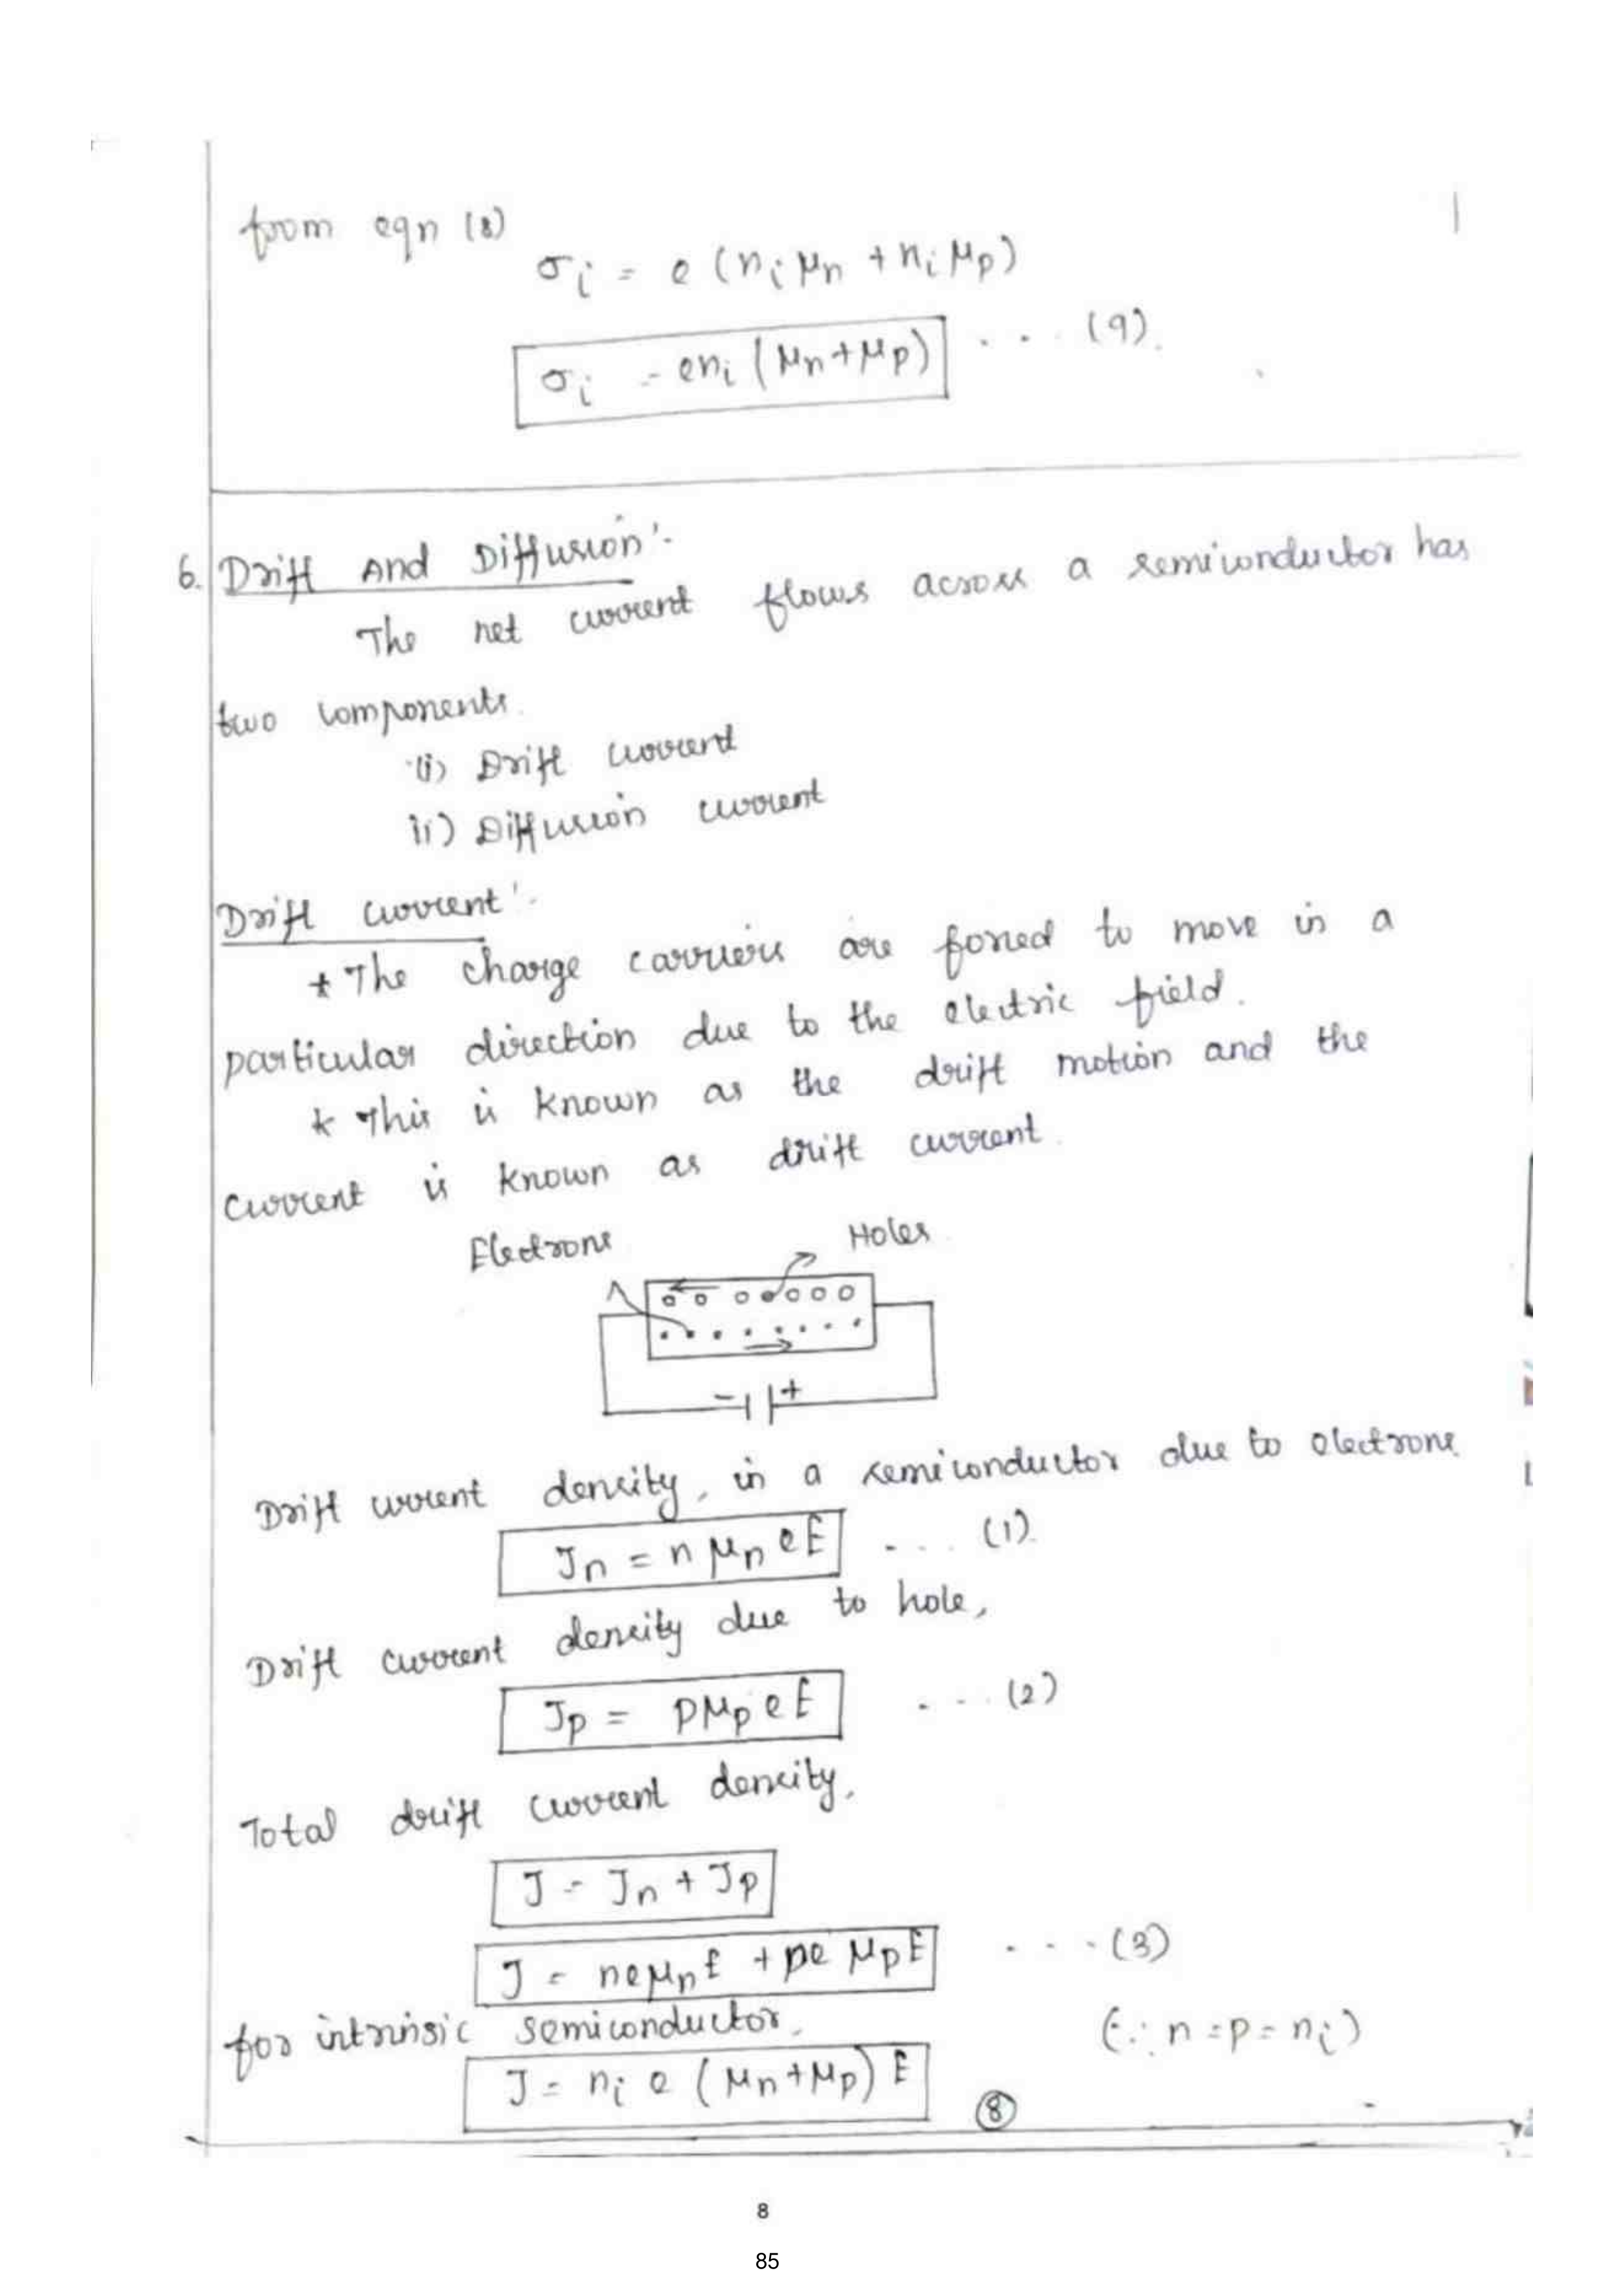 from eqn (8)
σi = e (ni μn + ni μp)
σi = eni (μn + μp) ... (9).
6. Drift And Diffusion:-
The net current flows across a semiconductor has
two components.
(i) Drift current
ii) Diffusion current
Drift current:-
* The charge carriers are forced to move in a
particular direction due to the electric field.
* This is known as the drift motion and the
current is known as drift current.
Electrons Holes
- +
Drift current density, in a semiconductor due to electrons
Jn = n μn eE ... (1).
Drift current density due to hole,
Jp = pμp eE ... (2)
Total drift current density,
J = Jn + Jp
J = neμnE + pe μpE ... (3)
for intrinsic semiconductor. (∵ n = p = ni)
J = ni e (μn + μp) E
8
8
85